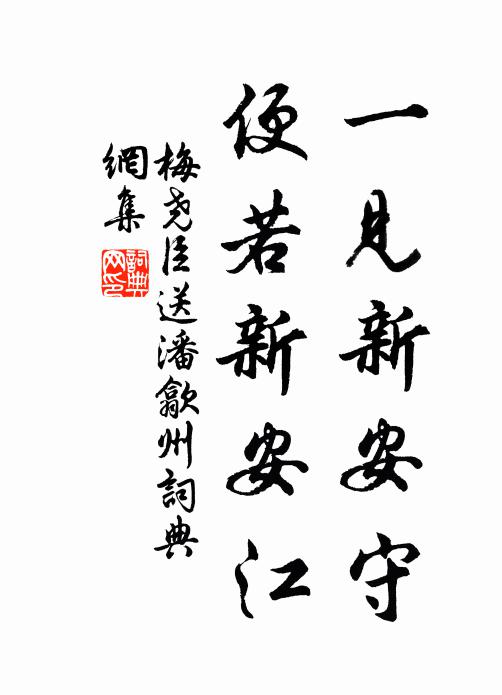 一見新安守
便若新安江
梅堯臣送潘歙州詞典
網集
詞典
网印